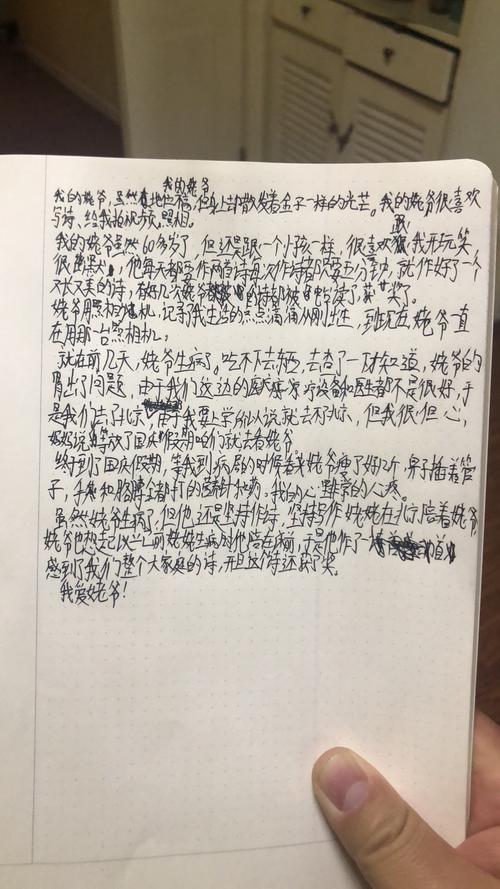 我的姥爷
我的姥爷,虽然 地位 ,但身上却散发着金子一样的光芒。我的姥爷很喜欢
写诗、给我拍机 照相。
我的姥爷虽然60多岁了,但还是跟一个小孩一样,很喜欢跟我开玩笑
很幽默,他每天都写作两首诗每次作诗都只要五分钟,就作好了一个
又长又美的诗,有好几次姥爷 的诗都被 读了获 奖了。
姥爷用照相 机,记录了我生活的点点滴滴从刚出生,到现在姥爷一直
在用那一台照相机。
就在前几天,姥爷生病了。吃不下去东西,去查了一下才知道,姥爷的
胃出了问题,由于我们这边的医疗 设备和医生都不是很好,于
是我们去了北京,由于我要上学所以说就去不了北京,但我很但心,
妈妈说等放了国庆假期咱们就去看姥爷。
终于到了国庆假期,等我到病房的时候看来姥爷瘦了好几斤,鼻子插着管
子,手 和胳膊全都打的 针 药,我的心里非常的心疼。
虽然姥爷生病了,但他还是坚持作诗,坚持写作姥姥在北京陪着姥爷
姥爷也想起以前 姥姥生病时他陪在 前,于是他作了一 首
感到了我们整个大家庭的诗,并且这个诗还获了奖。
我爱姥爷!